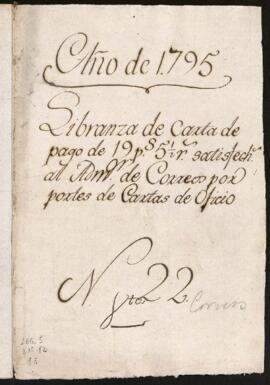 Año de 1795
Libranza de carta de
pago de 19 p.s 5½ r.s satisfech.s
al Adm.or de Correos por
portes de Cartas de Oficio
N 22
Correos
Leg. 5